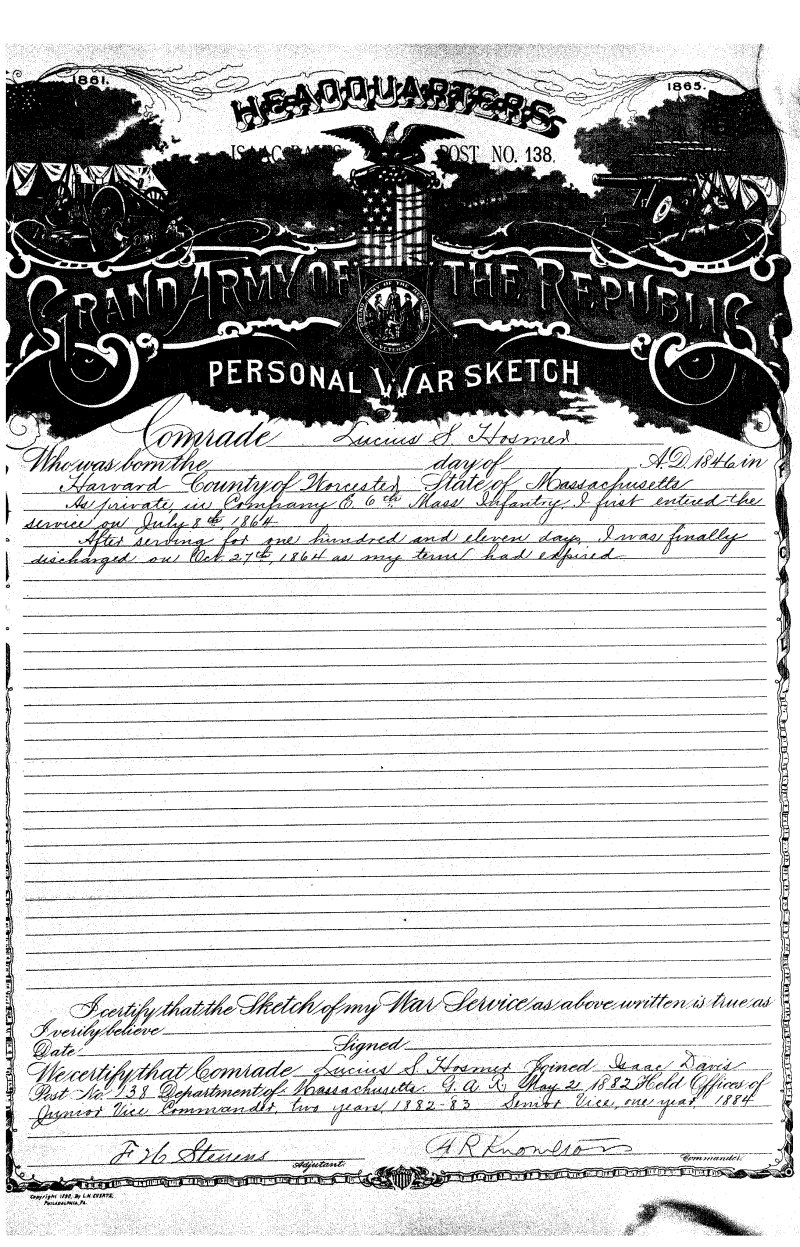 1861.
1865.
HEADQUARTERS
ISAAC DAVIS POST NO. 138.
GRAND ARMY OF THE REPUBLIC
PERSONAL WAR SKETCH
Comrade Lucius S. Hosmer.
Who was born the day of A.D. 1846 in
Harvard County of Worcester State of Massachusetts
As private, in Company E. 6th Mass Infantry, I first entered the
service on July 8th, 1864
After serving for one hundred and eleven days, I was finally
discharged on Oct. 27th, 1864 as my term had expired.
I certify that the Sketch of my War Service as above written is true as
I verily believe
Date Signed
We certify that Comrade Lucius S Hosmer Joined Isaac Davis
Post No. 138 Department of Massachusetts. G. A. R. May 2 1882 Held Offices of
Junior Vice Commander, two years, 1882-83 Senior Vice, one year, 1884
F H Stevens
Adjutant.
A R Knowlton
Commander.
Copyright 1890, By L.H. EVERTS,
PHILADELPHIA, PA.